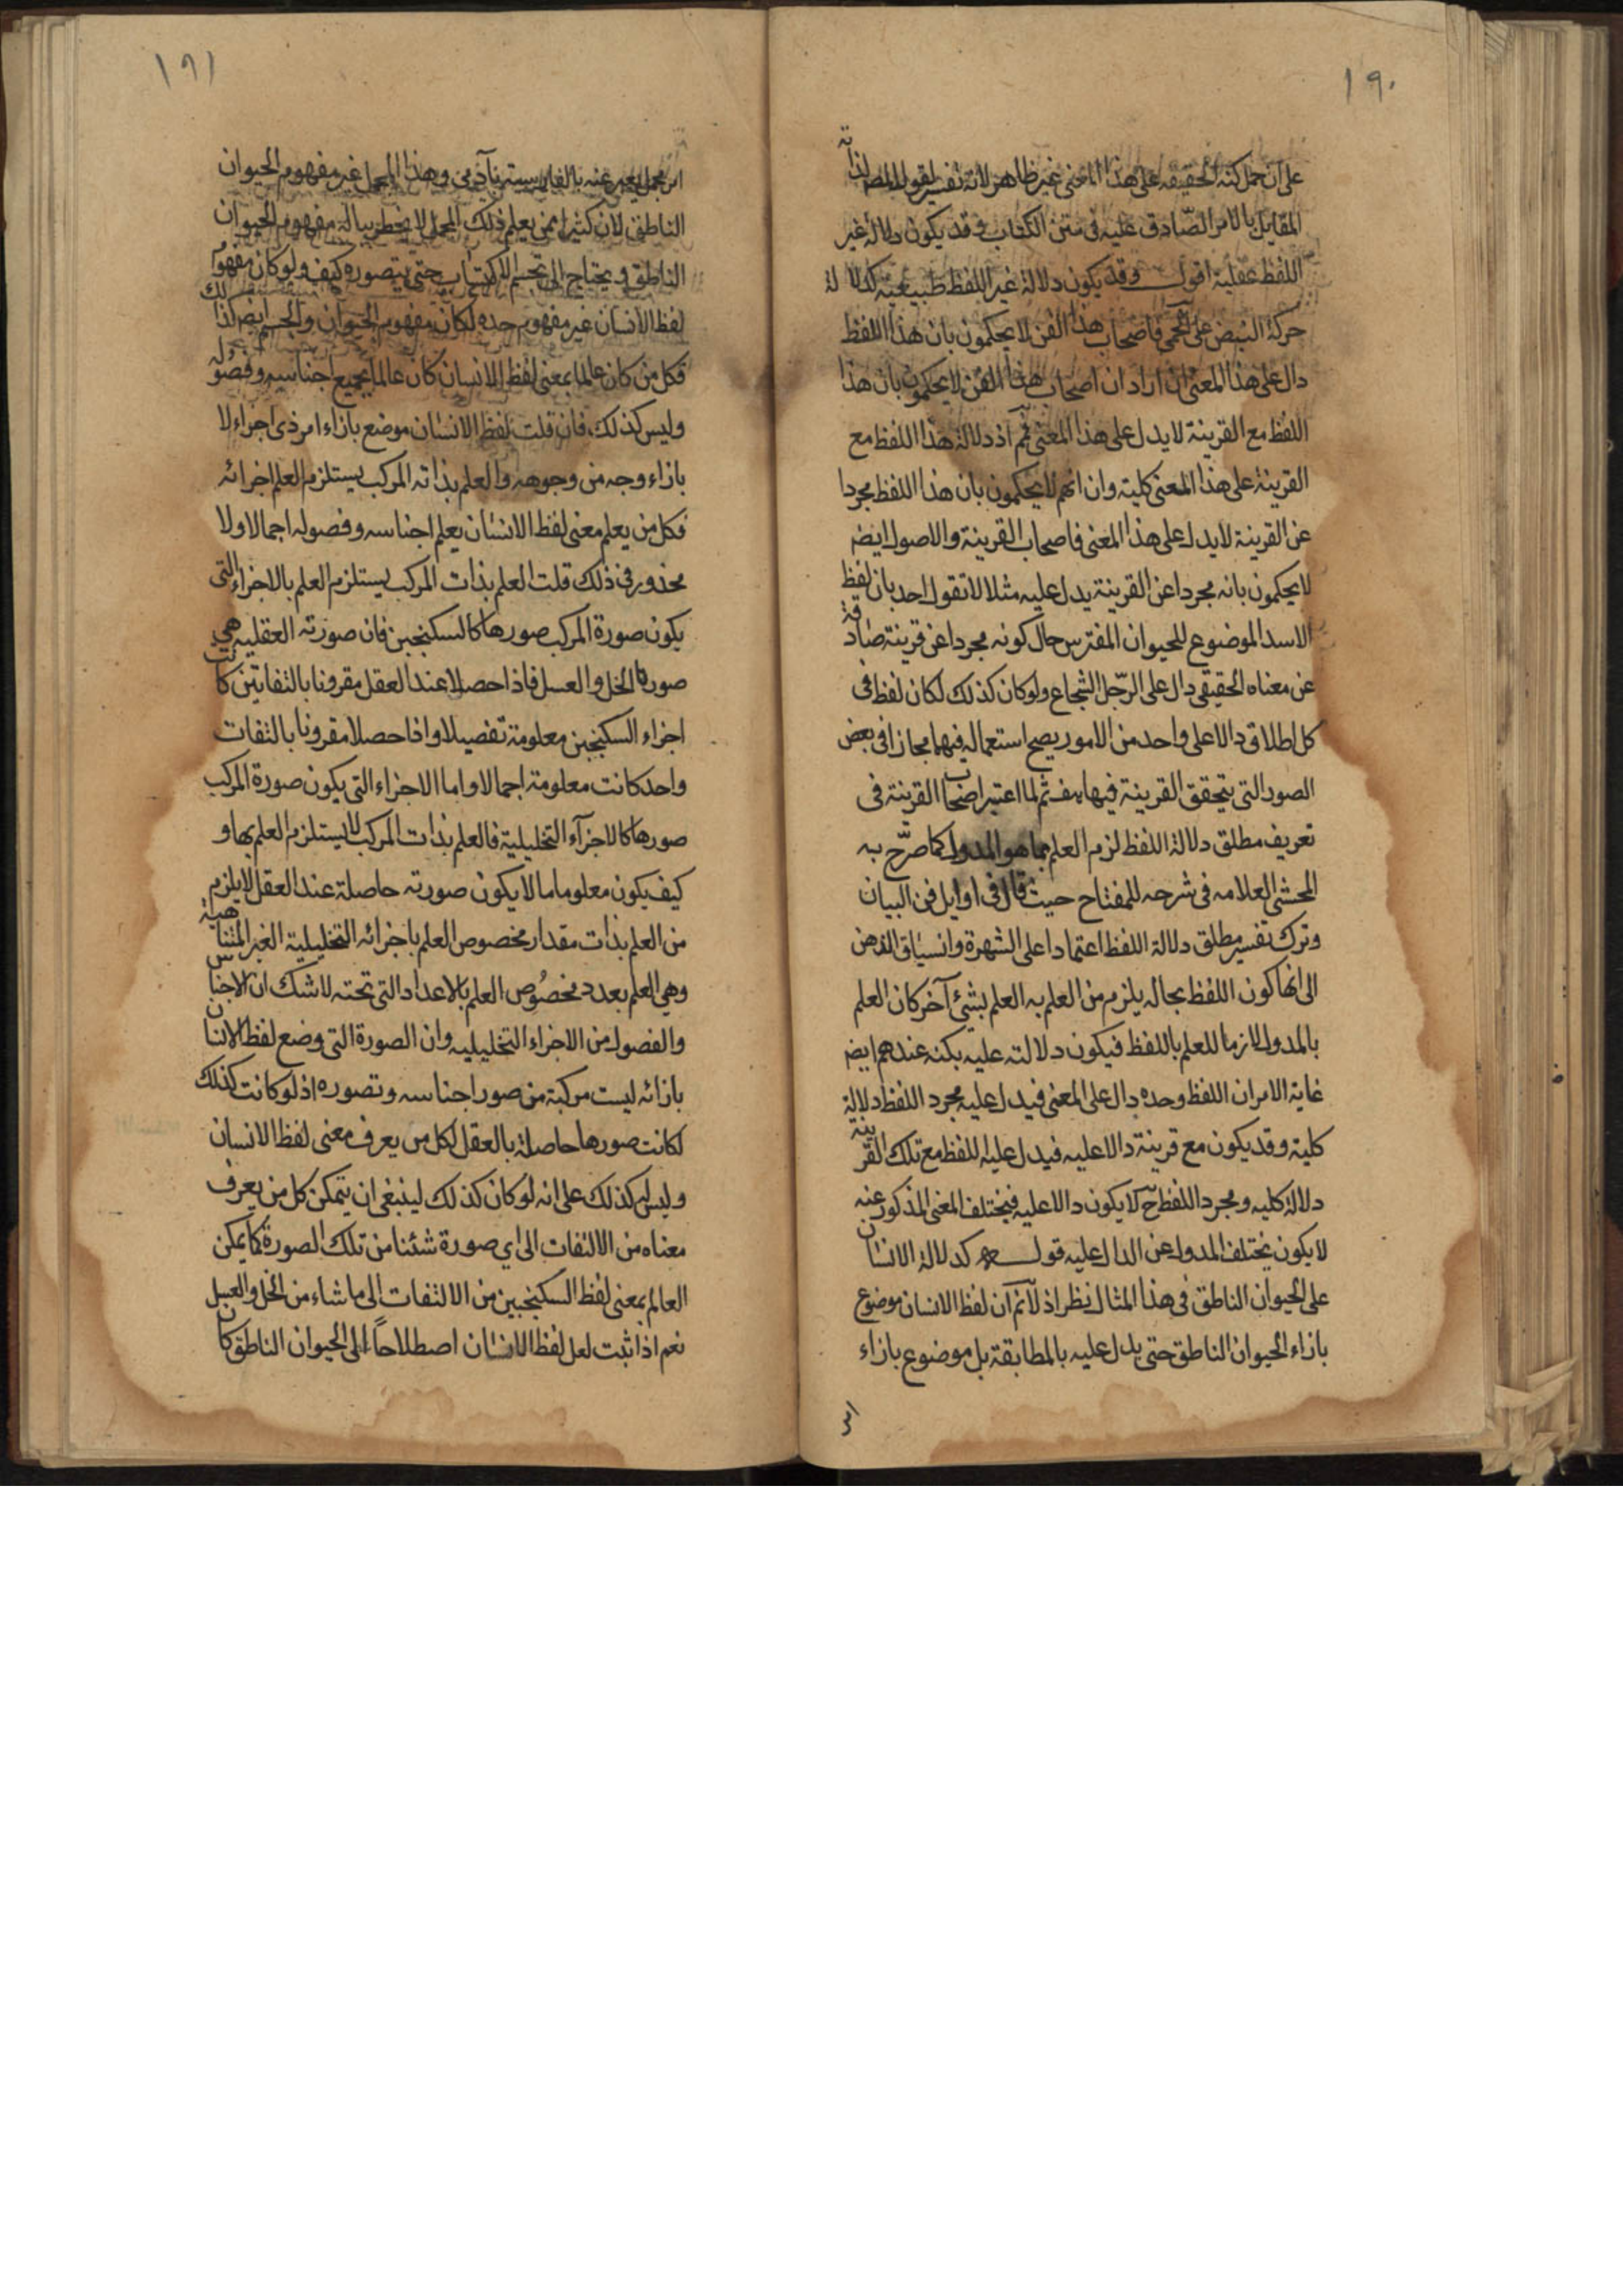 ١٩٠
على ان حمل كنه الحقيقة على هذا المعنى غير ظاهر لانه تفسير لقوله لذاته
المقابل بالامر الصادق عليه فى متن الكتاب وقد يكون دلالة غير
اللفظ عقلية اقول وقد يكون دلالة غير اللفظ طبيعية كدلالة
حركة النبض على الحمى فاصحاب هذا الفن لا يحكمون بان هذا اللفظ
دال على هذا المعنى ان اراد ان اصحاب هذا الفن لا يحكمون بان هذا
اللفظ مع القرينة لا يدل على هذا المعنى فمم اذ دلالة هذا اللفظ مع
القرينة على هذا المعنى كلية وان انهم لا يحكمون بان هذا اللفظ مجردا
عن القرينة لا يدل على هذا المعنى فاصحاب القرينة والاصول ايضا
لا يحكمون بانه مجردا عن القرينة يدل عليه مثلا لا تقول احد بان لفظ
الاسد الموضوع للحيوان المفترس حال كونه مجردا عن قرينة صادقة
عن معناه الحقيقى دال على الرجل الشجاع ولو كان كذلك لكان لفظ فى
كل اطلاق دالا على واحد من الامور يصح استعماله فيها مجازا فى بعض
الصور التى يتحقق القرينة فيها هف ثم لما اعتبر اصحاب القرينة فى
تعريف مطلق دلالة اللفظ لزم العلم بما هو المدول كما صرح به
المحشى العلامه فى شرحه للمفتاح حيث قال فى اوايل فن البيان
وترك تفسير مطلق دلالة اللفظ اعتمادا على الشهرة وانسياق الذهن
الى انها كون اللفظ بحاله يلزم من العلم به العلم بشئ آخر كان العلم
بالمدول لازما للعلم باللفظ فيكون دلالته عليه بكنه عندهم ايضا
غاية الامر ان اللفظ وحده دال على المعنى فيدل عليه مجرد اللفظ دلالة
كلية وقد يكون مع قرينة دالا عليه فيدل عليه اللفظ مع تلك القرينة
دلالة كليه ومجرد اللفظ ح لا يكون دالا عليه فيختلف المعنى المذكور عنه
لا يكون يختلف المدول عن الدال عليه قوله كدلالة الانسان
على الحيوان الناطق فى هذا المثال نظر اذ لانم ان لفظ الانسان موضوع
بازاء الحيوان الناطق حتى يدل عليه بالمطابقة بل موضوع بازاء
امر
١٩١
امر مجمل يعبر عنه بالفارسية بآدمى وهذا المجمل غير مفهوم الحيوان
الناطق لان كثيرا ممن يعلم ذلك المجمل لا يخطر بباله مفهوم الحيوان
الناطق ويحتاج الى تجشم الاكتساب حتى يتصوره كيف ولو كان مفهوم
لفظ الانسان غير مفهوم حده لكان مفهوم الحيوان والجسم ايضا كذلك
فكل من كان عالما بمعنى لفظ الانسان كان عالما بجميع اجناسه وفصوله
وليس كذلك فان قلت لفظ الانسان موضع بازاء امر ذى اجزاء لا
بازاء وجه من وجوهه والعلم بذاته المركب يستلزم العلم اجزائه
فكل من يعلم معنى لفظ الانسان يعلم اجناسه وفصوله اجمالا ولا
محذور فى ذلك قلت العلم بذات المركب يستلزم العلم بالاجزاء التى
يكون صورة المركب صورها كالسكنجبين فان صورته العقليه هى
صورتا الخل والعسل فاذا حصلا عند العقل مقرونا بالتفاتين كانت
اجزاء السكنجبين معلومة تفصيلا واذا حصلا مقرونا بالتفات
واحد كانت معلومة اجمالا واما الاجزاء التى يكون صورة المركب
صورها كالاجزآء التحليلية فالعلم بذات المركب لا يستلزم العلم بها و
كيف يكون معلوما ما لا يكون صورته حاصلة عند العقل لا يلزم
من العلم بذات مقدار مخصوص العلم باجزائه التحليلية الغير المتناهية
وهى العلم بعدد مخصوص العلم بالاعداد التى تحته لا شك ان الاجناس
والفصول من الاجزاء التحليليه وان الصورة التى وضع لفظ الانسان
بازائه ليست مركبة من صور اجناسه وتصوره اذ لو كانت كذلك
لكانت صورها حاصلة بالعقل لكل من يعرف معنى لفظ الانسان
وليس كذلك على انه لو كان كذلك لينبغى ان يتمكن كل من يعرف
معناه من الالتفات الى اى صورة شئنا من تلك الصورة كما يمكن
العالم بمعنى لفظ السكنجبين من الالتفات الى ما شاء من الخل والعسل
نعم اذا ثبت لعل لفظ الانسان اصطلاحاً الى الحيوان الناطق كان